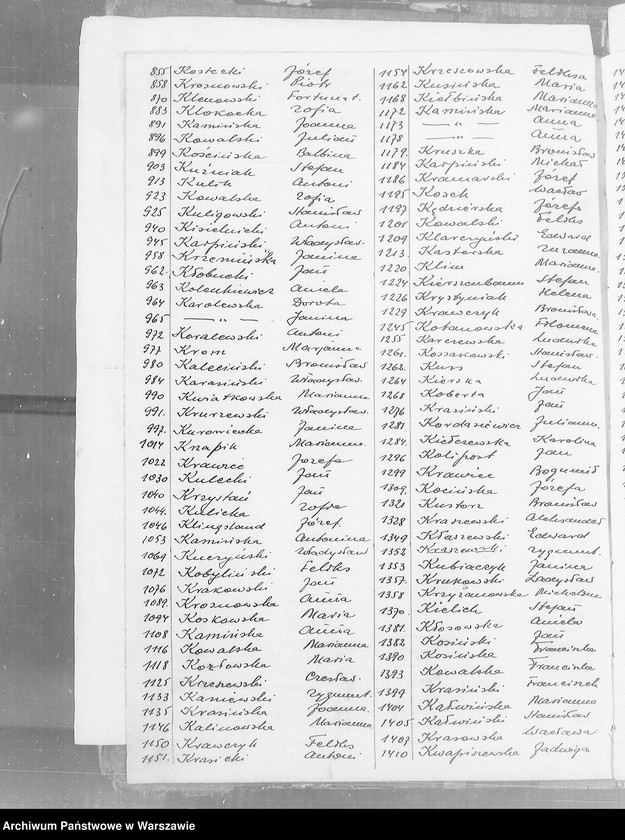 855 Kostecki Józef
858 Krasnowski Piotr
870 Klenowski Fortunat.
883 Klokocka Zofia
891 Kamińska Joanna
896 Kowalski Julian
899 Kościńska Balbina
903 Kuźniak Stefan
913 Kulik Antoni
923 Kowalska Zofia
925 Kuligowski Stanisław
940 Kisielnicki Antoni
945 Karpiński Władysław.
958 Krzemińska Janina
962. Kłobucki Jan
963 Kolenkiewicz Aniela
964 Karolewska Dorota
965 —„— Janina
972 Koralewski Antoni
977 Krom Marjanna
980 Kaleciński Bronisław
984 Karasiński Władysław.
990 Kwiatkowska Marianna
991. Kruszewski Władysław.
997. Kurowicka Janina
1014 Knapik Marianna.
1022 Krawiec Józefa
1030 Kulecki Jan
1040 Krzystań Jan
1044. Kalicka Zofia
1046 Klingsland Józef.
1053 Kamińska Antonina
1069 Kuczyński Władysław
1072 Kobyliński Feliks
1076 Krakowski Jan
1089. Krosnowska Anna
1094 Koskowska Maria
1108 Kamińska Anna
1116 Kowalska Marianna
1118 Kozłowska Maria
1125 Krzezewski Czesław.
1133 Kaniewski Zygmunt.
1135 Krasińska Joanna.
1146 Kalinowska Marianna
1150 Krawczyk Feliks
1151. Krasicki Antoni
1154 Krzeszowska Feliksa
1162 Kusińska Maria
1168 Kiełbińska Marianna
1172 Kamińska Marianna
1173 —„— Anna
1178 —„— Anna
1179. Kruszka Bronisław
1184 Karpiński Michał
1186 Kramarski Józef
1195 Kosek Wacław
1197 Kędzierska Józefa
1201 Kowalski Feliks
1209 Klarczyński Edward
1213. Kastorska Zuzanna.
1220 Klim Marianna.
1224 Kierszenbaum Stefan
1226 Krystyniak Helena
1229 Krawczyk Bronisława.
1245 Kotanowska Filomena
1255 Karczewska Ludwika
1261. Kossakowski Stanisław.
1262. Kuss Stefan
1264 Kierska Ludwika
1268 Koberta Jan
1276 Krasiński Jan
1281 Kordasiewicz Julianna.
1284. Kieliszewska Karolina
1296 Kolipost Jan
1299 Krawiec Bogumił
1309. Kocińska Józefa
1321 Kustorz Bronisław
1328 Kraszewski Aleksander
1349 Kłaszewski Edward
1352 Kraszewski Zygmunt.
1353 Kubiaczyk Janina
1357. Krukowski Ladysław
1358 Krzyżanowska Michalina
1370. Kielich Stefan
1381. Kłosowska Aniela
1382 Kosiński Jan
1390 Kosińska Franciszka
1393 Kowalska Franciszka
1399 Krasiński Franciszek
1404 Kałwińska Marianna
1405 Kałwiński Stanisław
1407 Krasowska Wacława
1410 Kwapiszewska Jadwiga
Archiwum Państwowe w Warszawie